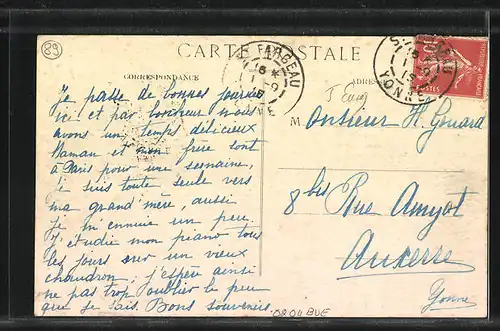 89
CARTE POSTALE
CORRESPONDANCE
ADRESSE
FARGEAU
YONNE
POSTES
10
Je passe de bonnes journées
ici et par bonheur nous
avons un temps délicieux
Maman et mon frère sont
à Paris pour une semaine,
je suis toute seule vers
ma grand'mère, aussi
je m'ennuie un peu.
J'etudie mon piano tous
les jours sur un vieux
chaudron, j'espère ainsi
ne pas trop oublier le peu
que je sais. Bons souvenirs
Monsieur H. Gouard
8 bis Rue Amyot
Auxerre
Yonne